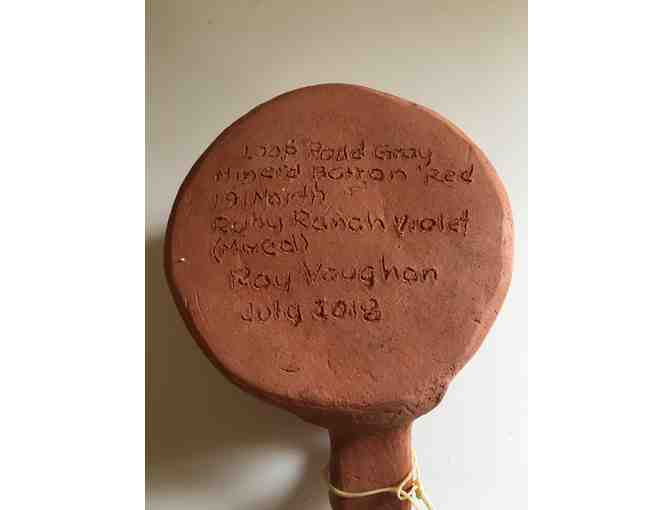 Loop Road Gray
Mineral Bottom Red
191 North
Ruby Ranch Violet
(Mixed)
Ray Vaughan
July 2018